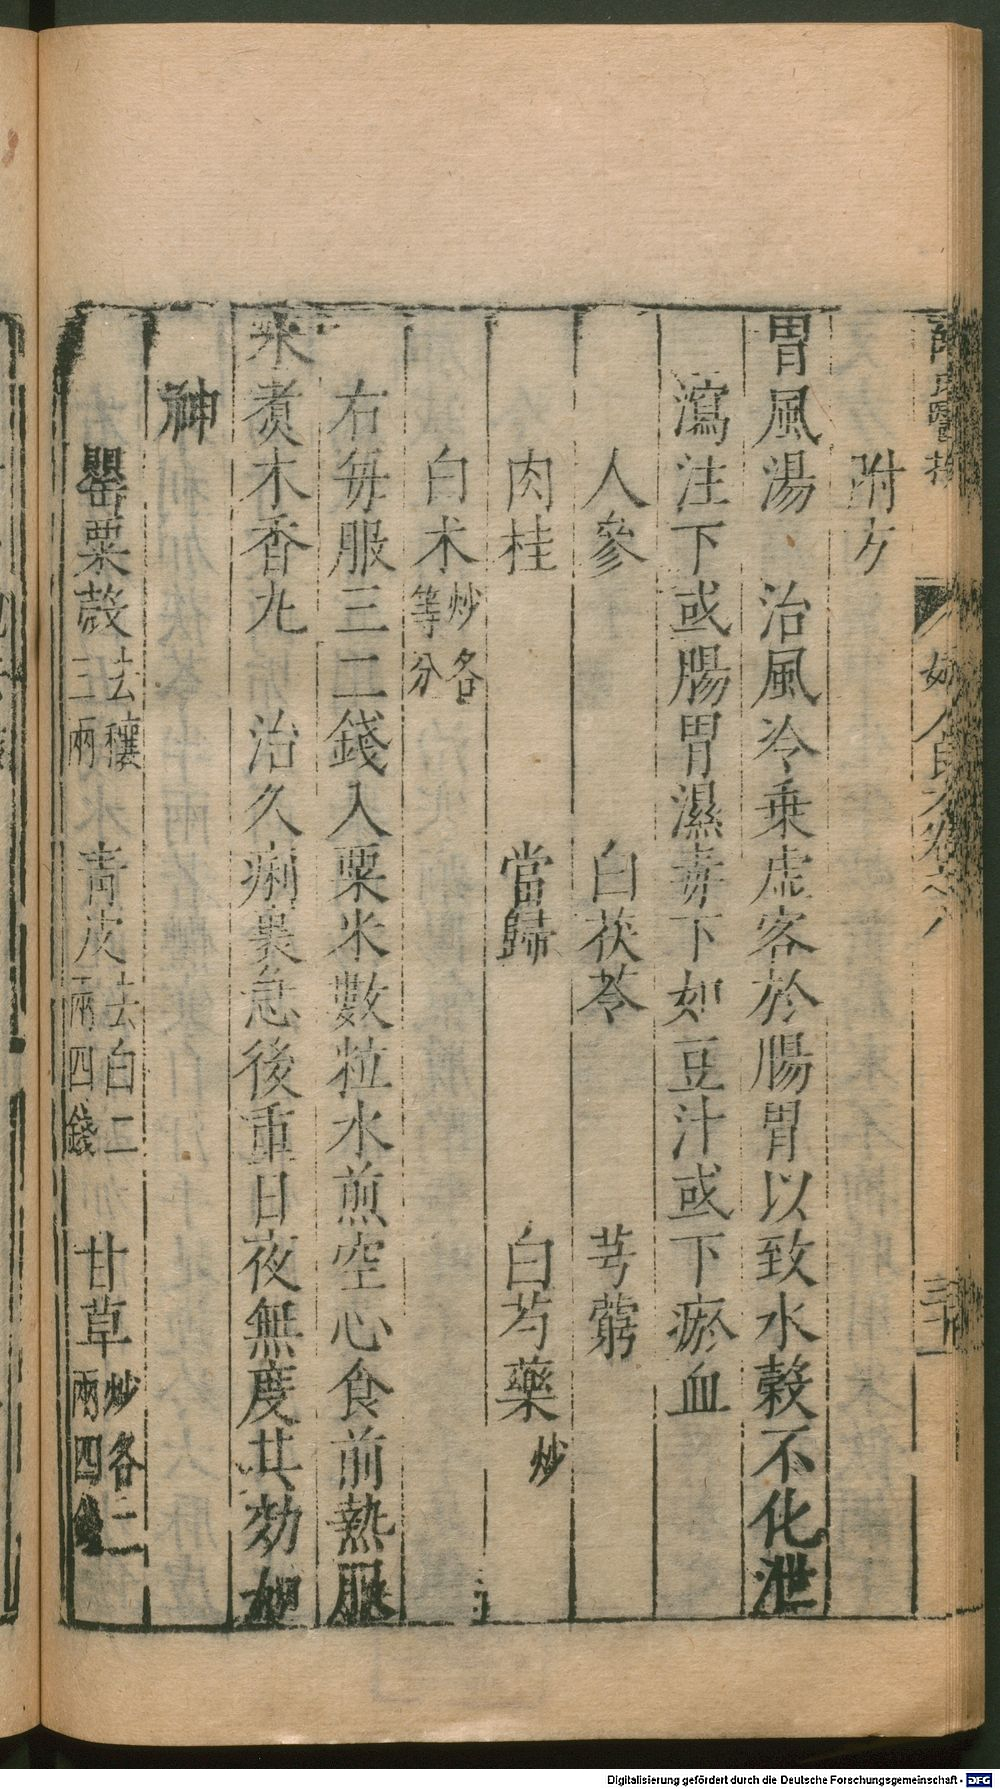 附方
胃風湯　治風冷乗虚客於腸胃以致水榖不化泄
瀉注下或腸胃濕毒下如豆汁或下瘀血
人參　白茯苓　芎藭
肉桂　當歸　白芍藥炒
白术炒各等分
右每服三二錢入粟米數粒水煎空心食前熱服
米煑木香丸　治久痢裏急後重日夜無度其効如
神
罌粟殼去穰三兩　青皮去白二兩四錢　甘草炒各二兩四錢
婦人良方卷之八
Digitalisierung gefördert durch die Deutsche Forschungsgemeinschaft - DFG